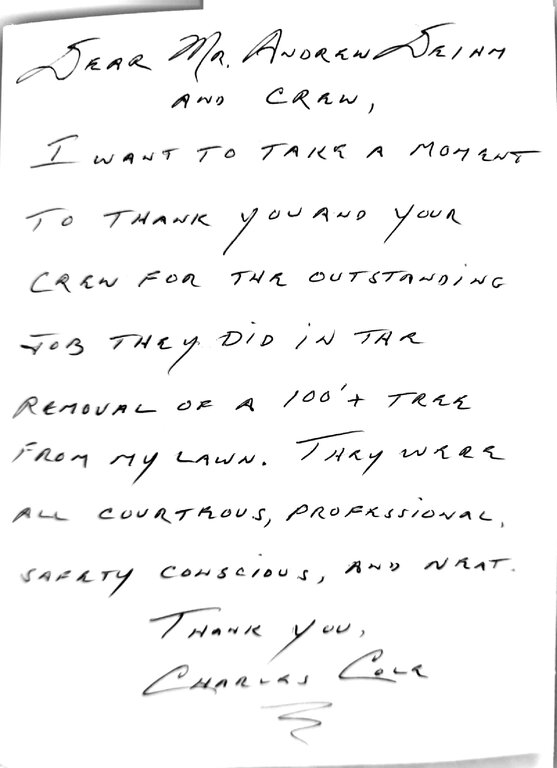 Dear Mr. Andrew Deihm
and crew,
I want to take a moment
to thank you and your
crew for the outstanding
job they did in the
removal of a 100'+ tree
from my lawn. They were
all courteous, professional,
safety conscious, and neat.
Thank you,
Charles Cole